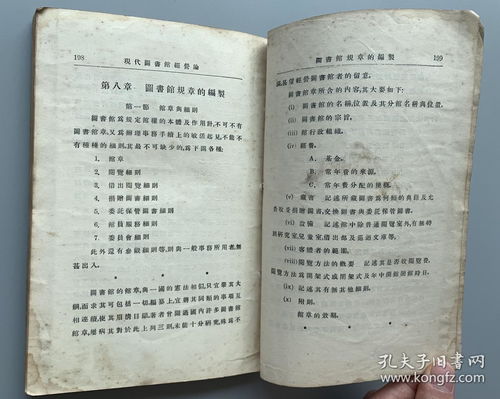 198
現代圖書館經營論
第八章 圖書館規章的編製
第一節 館章與細則
圖書館為規定館種的本體及作用計,不可不有
圖書館章,又為細理事務手續上的敏活起見,不能不
有種種的細則,其最不可缺少的,為下圖各種:
1. 館章
2. 閱覽細則
3. 借出閱覽細則
4. 捐贈圖書細則
5. 委託保管圖書細則
6. 館員服務細則
7. 委員會細則
此外還有參觀細則等,則與一般事務所用者,無
甚出入。
圖書館的館章,與一國的憲法相似,只宜舉其大
綱,而求其可包括一切,編纂上,宜將其同類的事項,互
相連續,使其眉清目顯。著者曾閱過國內許多圖書館
館章,屢病其對於此上列三則,未能十分研究,殊為不
圖書館規章的編製
199
圖書館章所含的內容,其大要如下:
(i) 圖書館的名稱,位置及其分館名稱與位置。
(ii) 圖書館的宗旨。
(iii) 館行政組織。
(iv) 經費。
A. 基金。
B. 常年費的來源。
C. 常年費分配的種類。
(v) 藏書 記述所藏圖書為何類的典籍及允
許收受捐贈圖書,交換圖書與委託保管圖書。
(vi) 設備 記述館中除普通閱覽室外,有無特
別研究室,兒童室,借出部及巡迴文庫等。
(vii) 客體者的範圍。
(viii) 閱覽方法的概要 記述其是否收閱覽費,
閱覽方法為開架式或閉架式及年中開館閉館時日。
(ix) 記述其有無其他細則。
(x) 附則。
館章的效期。
孔夫子旧书网
www.kongfz.com